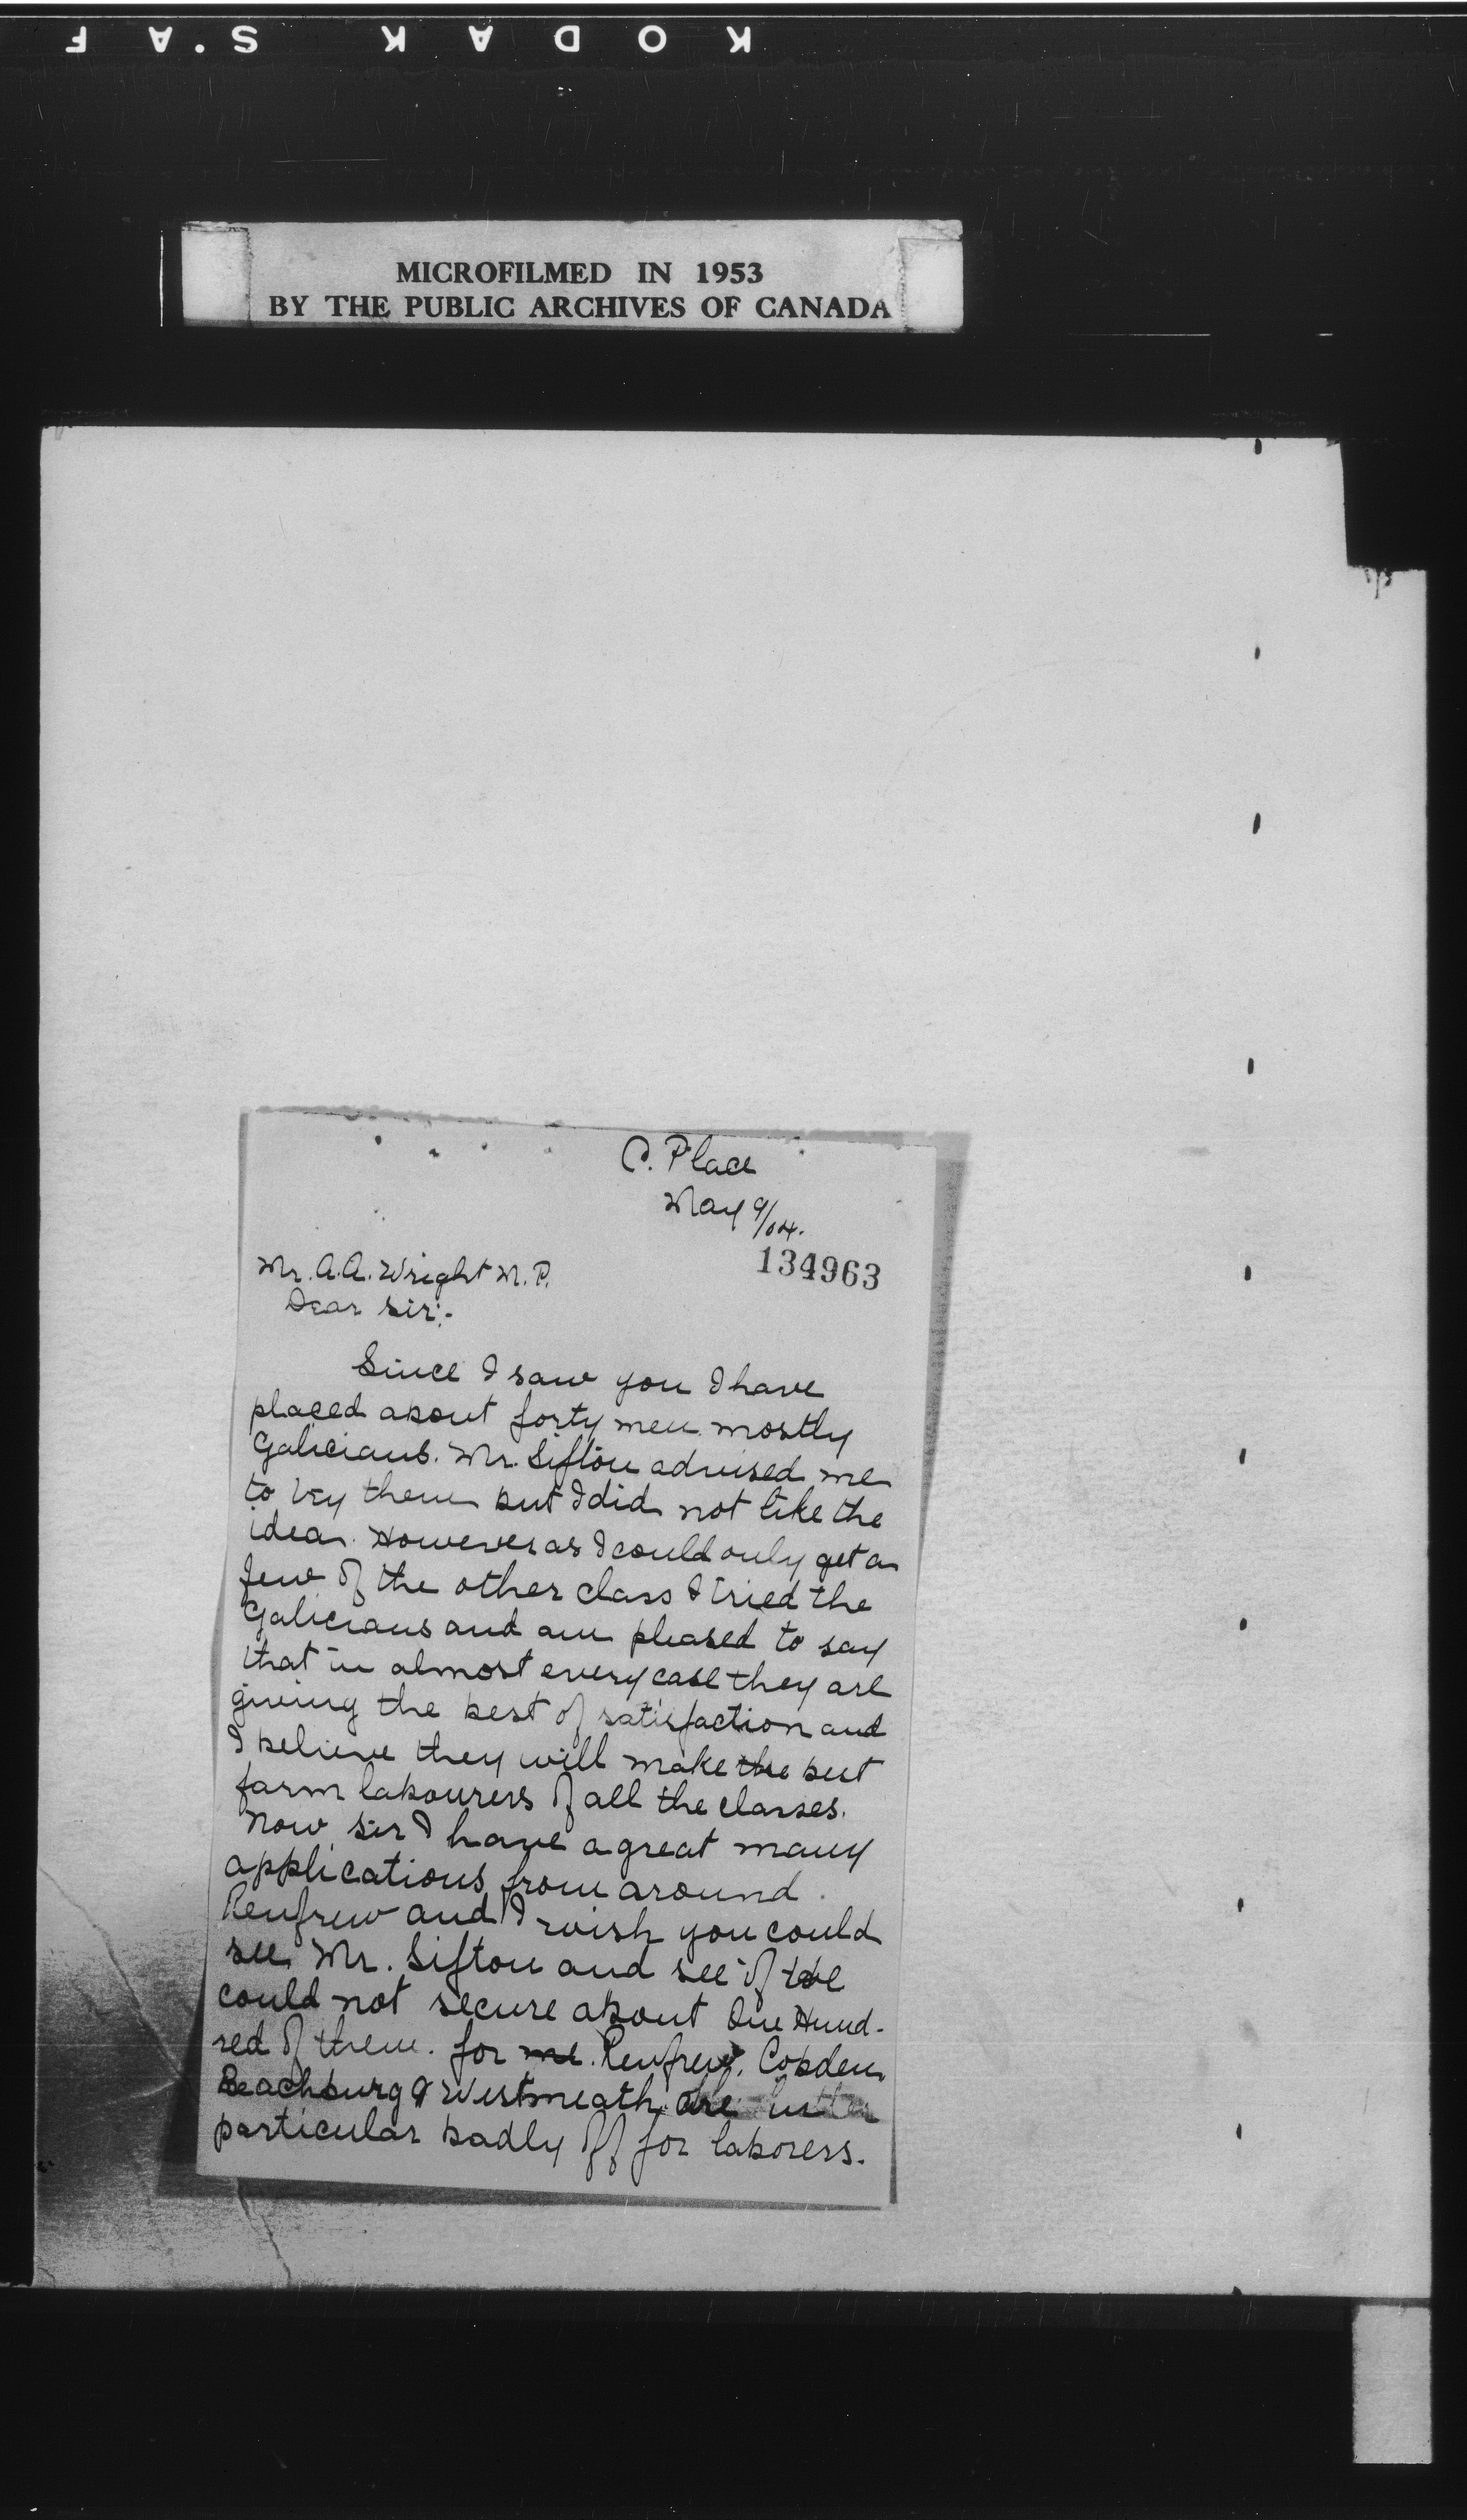 KODAK S.AF
MICROFILMED IN 1953
BY THE PUBLIC ARCHIVES OF CANADA
C. Place
May 9/04.
134963
Mr. A.A. Wright M.P.
Dear Sir:-
Since I saw you I have
placed about forty men mostly
Galicians. Mr. Sifton advised me
to try them but I did not like the
idea. However as I could only get a
few of the other class I tried the
Galicians and am pleased to say
that in almost every case they are
giving the best of satisfaction and
I believe they will make the best
farm labourers of all the classes.
Now, sir I have a great many
applications from around
Renfrew and I wish you could
see Mr. Sifton and see if
could not secure about One Hund-
red of them. for me. Renfrew, Cobden
Beachburg & Westmeath are in
particular badly off for laborers.